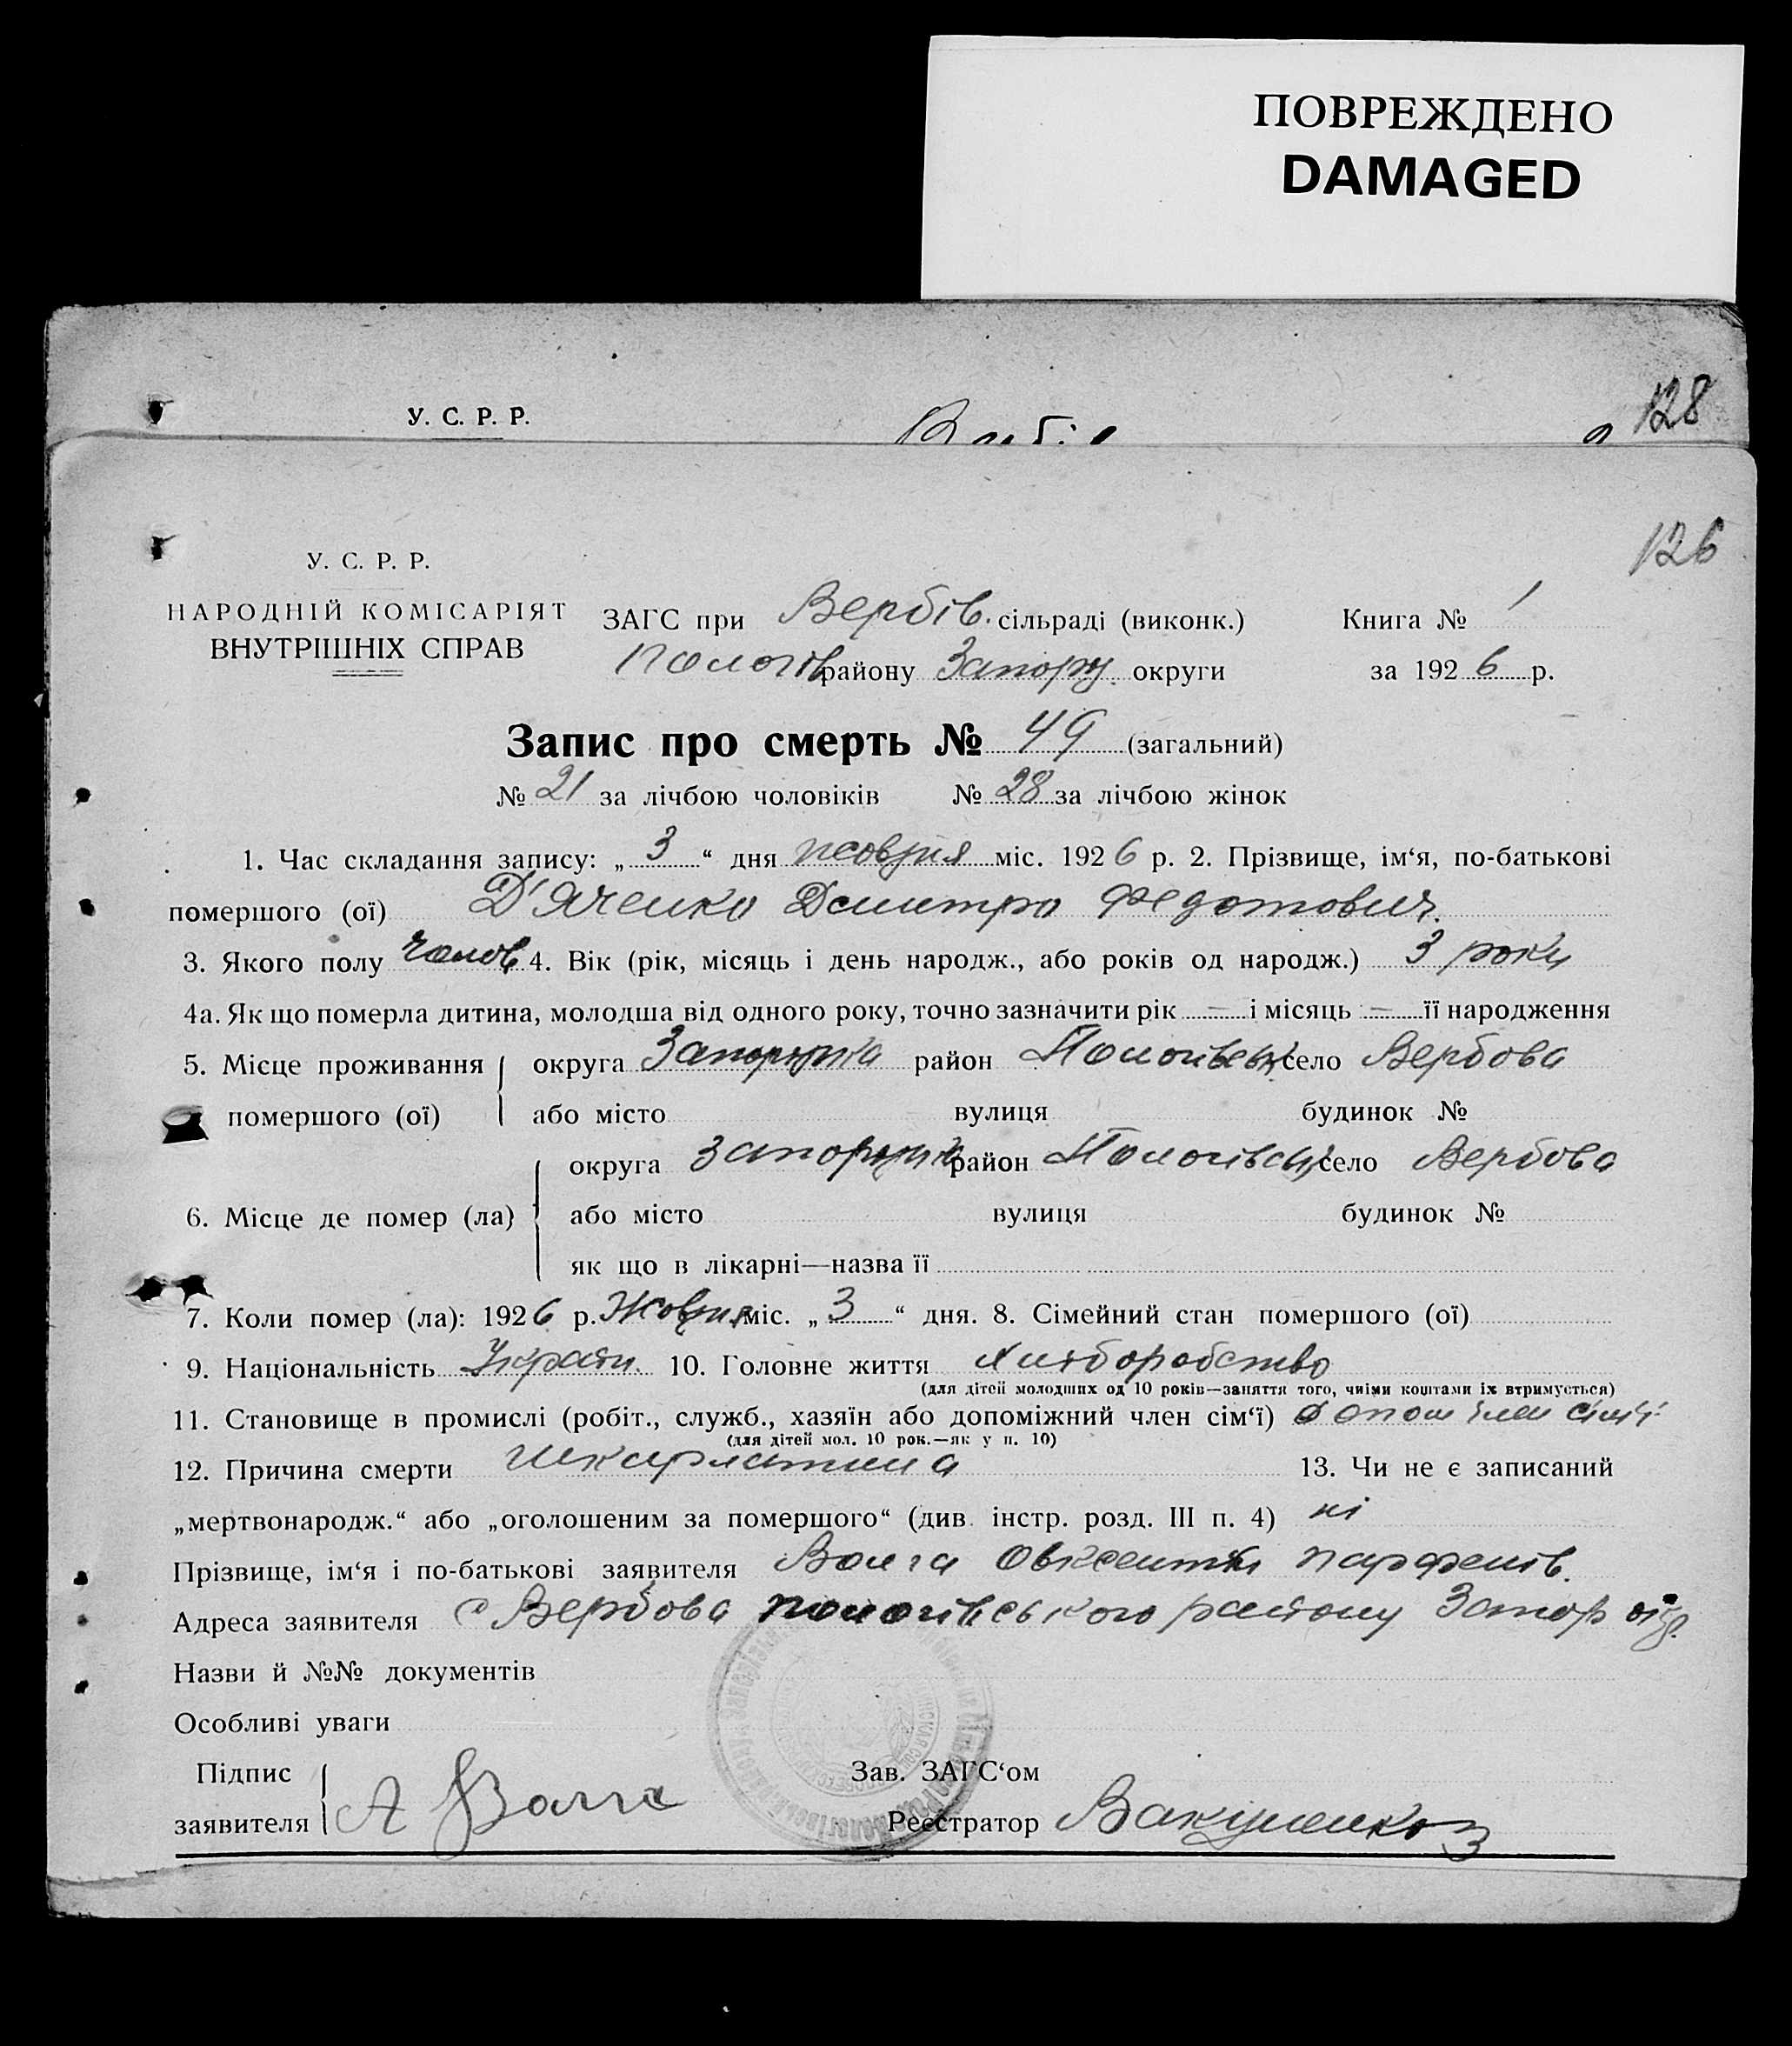 ПОВРЕЖДЕНО
DAMAGED
128
У. С. Р. Р.
126
У. С. Р. Р.
НАРОДНІЙ КОМІСАРІЯТ
ВНУТРІШНІХ СПРАВ
ЗАГС при Вербів. сільраді (виконк.) Книга № 1
Пологів району Запору. округи за 1926 р.
Запис про смерть № 49 (загальний)
№ 21 за лічбою чоловіків № 28 за лічбою жінок
1. Час складання запису: „ 3 “ дня жовтня міс. 1926 р. 2. Прізвище, ім‘я, по-батькові
помершого (ої) Д'яченко Дмитро Федотович.
3. Якого полу чолов 4. Вік (рік, місяць і день народж., або років од народж.) 3 роки
4а. Як що померла дитина, молодша від одного року, точно зазначити рік — і місяць — її народження
5. Місце проживання округа Запоружка район Пологівськ село Вербова
помершого (ої) або місто вулиця будинок №
округа Запоружка район Пологівськ село Вербова
6. Місце де помер (ла) або місто вулиця будинок №
як що в лікарні—назва її
7. Коли помер (ла): 1926 р. Жовтня міс. „ 3 “ дня. 8. Сімейний стан помершого (ої)
9. Національність Україн. 10. Головне життя хліборобство
(для дітей молодших од 10 років—заняття того, чиїми коштами їх втримується)
11. Становище в промислі (робіт., служб., хазяїн або допоміжний член сім‘ї) допом член сім'ї
(для дітей мол. 10 рок.—як у п. 10)
12. Причина смерти шкарлятина 13. Чи не є записаний
„мертвонародж.“ або „оголошеним за помершого“ (див. інстр. розд. III п. 4) ні
Прізвище, ім‘я і по-батькові заявителя Волга Овксентій Парфенів.
Адреса заявителя с Вербова Пологівського району Запор окр.
Назви й №№ документів
Особливі уваги
Підпис
заявителя А Волга
Зав. ЗАГС‘ом
Реєстратор Вакуленко